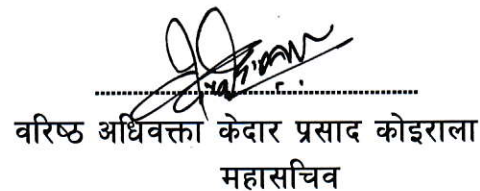 वरिष्ठ अधिवक्ता केदार प्रसाद कोइराला
महासचिव